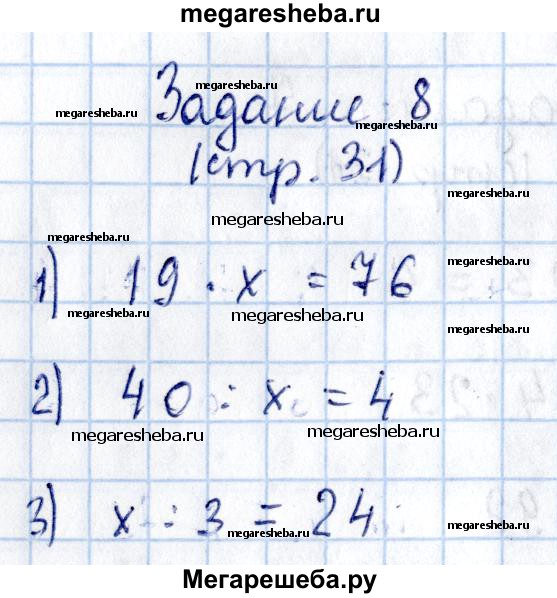 megaresheba.ru
megaresheba.ru
Задание 8
megaresheba.ru megaresheba.ru
(стр. 31)
megaresheba.ru
megaresheba.ru
megaresheba.ru
megaresheba.ru
1) 19 · x = 76
megaresheba.ru megaresheba.ru
megaresheba.ru
2) 40 : x = 4
megaresheba.ru megaresheba.ru
3) x : 3 = 24
megaresheba.ru megaresheba.ru
Мегарешеба.ру